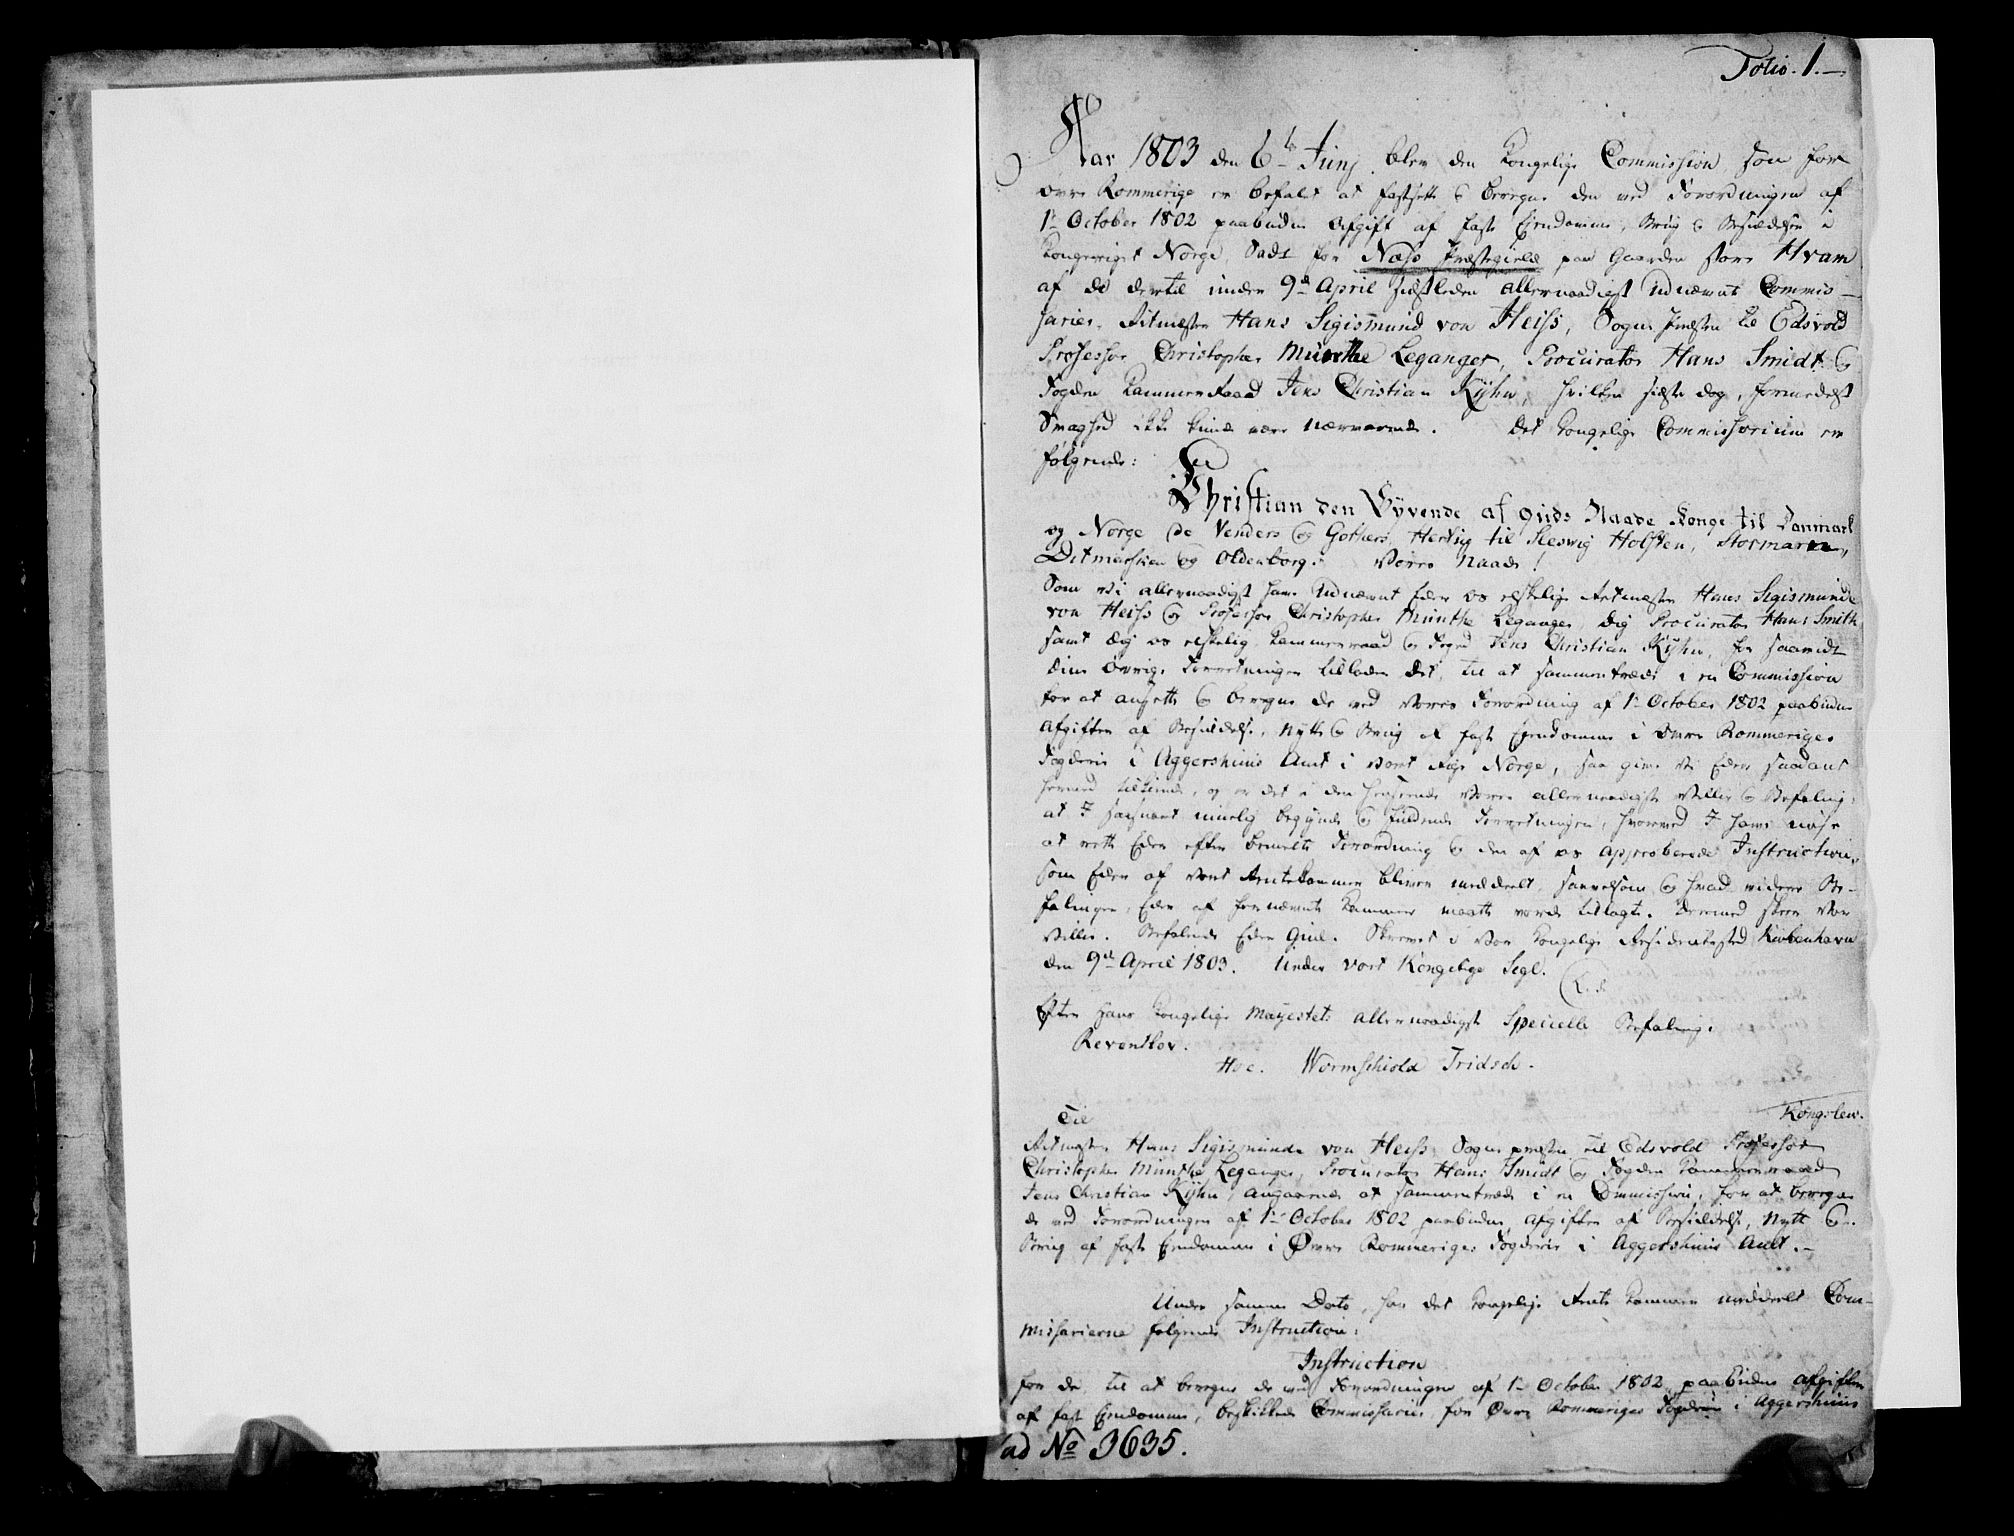 Folio. 1.
Aar 1803 den 6te Junj blev den kongelige Commission som for
øvre Rommerige er befalet at fastsette & beregne den ved Forordningen af
1te October 1802 paabudne Afgift af faste Ejendomme, Brug & Besiddelse i
Kongeriget Norge, Sadt for Næss Præstegield paa Gaarden store Hvam
af de dertil under 9de April sidstleden allernaadigst Udnævnte Commis-
sarier, Ritmester Hans Sigismund von Heiss, Sogne Præsten til Edsvold
Professor Christopher Munthe Leganger, Procurator Hans Smidt &
Fogden Kammerraad Jens Christian Kyhn, hvilken sidste dog, formedelst
Svaghed ikke kunde være nærværende. Det kongelige Commissorium er
følgende:
Christian den Syvende af Guds Naade Konge til Danmark
og Norge de Venders og Gothers, Hertug til Slesvig Holsten, Stormarn,
Ditmarsken og Oldenborg. Vores Naade!
Som Vi allernaadigst have Udnævnt Eder os elskelige Ritmester Hans Sigismunde
von Heiss & Professor Christopher Munthe Leganger, Dig Procurator Hans Smith
samt Dig os elskelig Kammerraad & Foged Jens Christian Kyhn, for saavidt
dine øvrige Forretninger tillader det, til at sammentræde i en Commission
for at ansette & beregne de ved Vores Forordning af 1te October 1802 paabudne
Afgifter af Besiddelse, Nytte & Brug af faste Ejendomme i Øvre Rommeriges
Fogderie i Aggershuus Amt i Vort Rige Norge, saa give Vi Eder saadant
herved tilkiende, og er det i den Henseende Vores allernaadigste Villie & Befaling,
at I saasnart muelig begynde & fuldende Forretningen, hvorved I have nøje
at rette Eder efter bemelte Forordning & den af os approberede Instruction,
som Eder af Vort Rentekammer bliver meddeelt, saavelsom & hvad videre Be-
falinger, Eder af fornævnte Kammer maatte vorde tillagte. Dermed skeer Vor
Villie. Befalende Eder Gud. Skrevet i Vor kongelige Residentzstad Kiøbenhavn
den 9de April 1803. Under Vort Kongelige Segl.
Efter Hans Kongelige Mayestets allernaadigste Specielle Befaling.
Reventlov.
Hoe. Wormskiold Fridsch.
Kongslew.
Til
Ritmester Hans Sigismunde von Heiss, Sogne præsten til Edsvold Professor
Christopher Munthe Leganger, Procurator Hans Smidt & Fogden Kammerraad
Jens Christian Kyhn, angaaende at sammentræde i en Commission, for at beregne
de ved Forordningen af 1te October 1802 paabudne Afgifter af Besiddelse, Nytte &
Brug af faste Ejendomme i Øvre Rommeriges Fogderie i Aggershuus Amt.
Under samme Dato, har det kongelige Rente Kammer meddeelt Com-
missarierne følgende Instruction:
Instruction
for de til at beregne de ved Forordningen af 1te October 1802 paabudne Afgifter
af faste Ejendomme, beskikkede Commissarier for Øvre Rommeriges Fogderie i Aggershuus
ad No 3635.